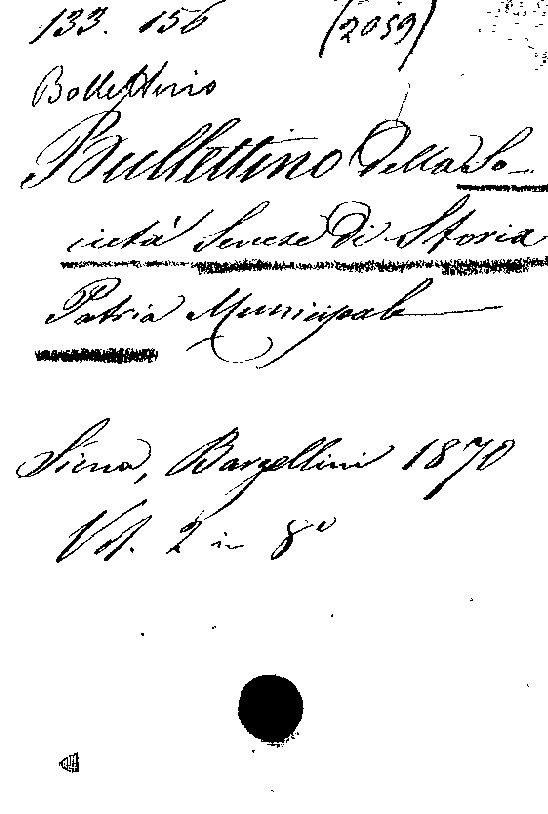 133. 156 (2059)
Bollettino
Bullettino Della So-
cietà Senese Di Storia
Patria Municipale
Siena, Bargellini 1870
Vol. 2 in 8º